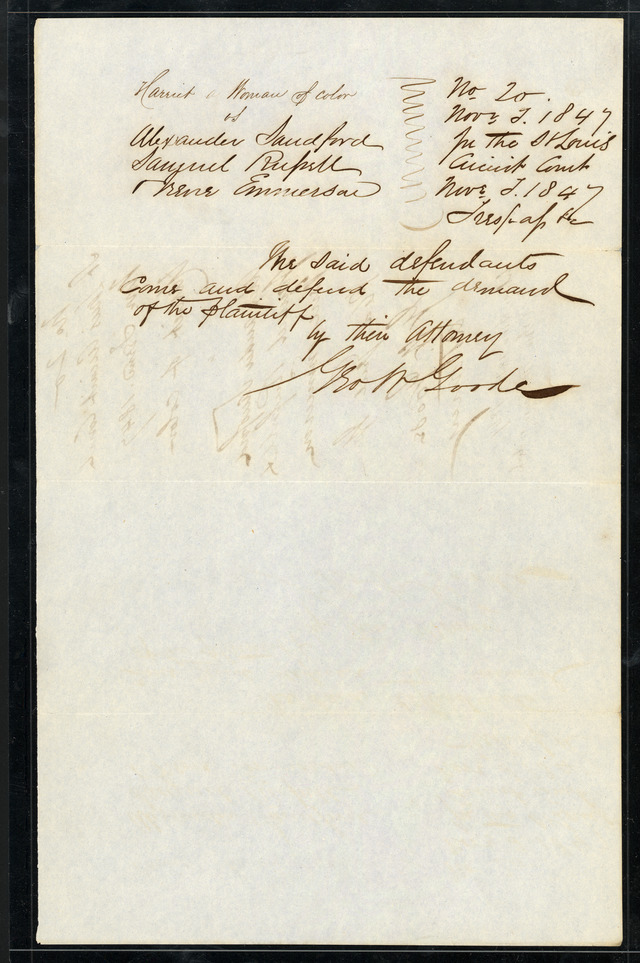 Harriet a Woman of color
vs
Alexander Sandford
Samuel Russell
Irene Emmerson
No 20.
Nov. T. 1847
In the St Louis
Circuit Court
Nov. T. 1847
Trespass &c
The said defendants
Come and defend the demand
of the plaintiff
by their Attorney
Geo W Goode